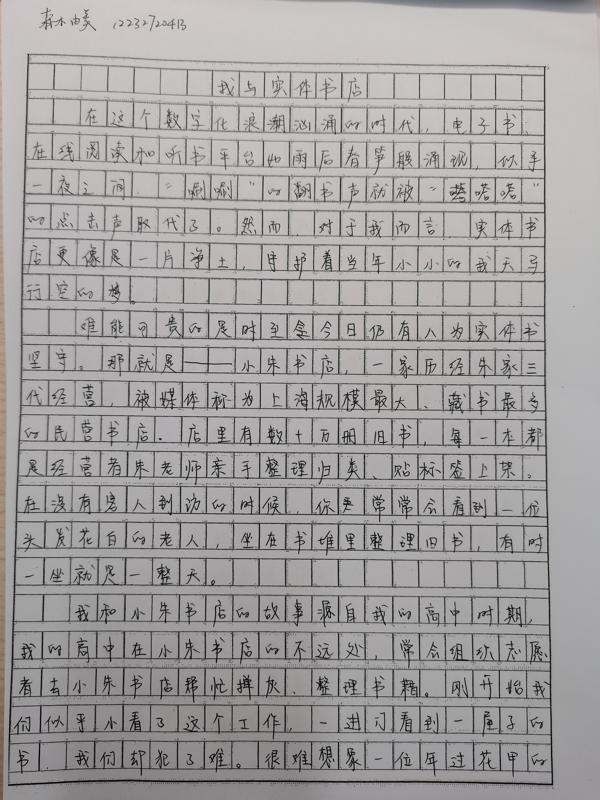 森木由美 12232720413
我与实体书店
在这个数字化浪潮汹涌的时代，电子书、
在线阅读和听书平台如雨后春笋般涌现，似乎
一夜之间，“唰唰”的翻书声就被“嗒嗒嗒”
的点击声取代了。然而，对于我而言，实体书
店更像是一片净土，守护着当年小小的我天马
行空的梦。
难能可贵的是时至今日仍有人为实体书
坚守。那就是——小朱书店，一家历经朱家三
代经营，被媒体称为上海规模最大、藏书最多
的民营书店。店里有数十万册旧书，每一本都
是经营者朱老师亲手整理归类、贴标签上架。
在没有客人到访的时候，你常常会看到一位
头发花白的老人，坐在书堆里整理旧书，有时
一坐就是一整天。
我和小朱书店的故事源自我的高中时期，
我的高中在小朱书店的不远处，常会组织志愿
者去小朱书店帮忙摆放、整理书籍。刚开始我
们似乎小看了这个工作，一进门看到一屋子的
书，我们却犯了难。很难想象一位年过花甲的